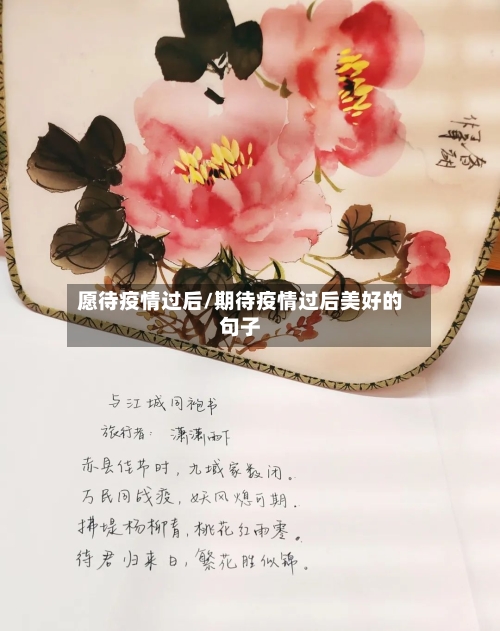 愿待疫情过后/期待疫情过后美好的
句子
与江城同袍书
旅行者：潇潇雨下
赤县佳节时，九域家数闭。
万民同战疫，妖风熄可期.
拂堤杨柳青，桃花红雨零。
待君归来日，繁花胜似锦。